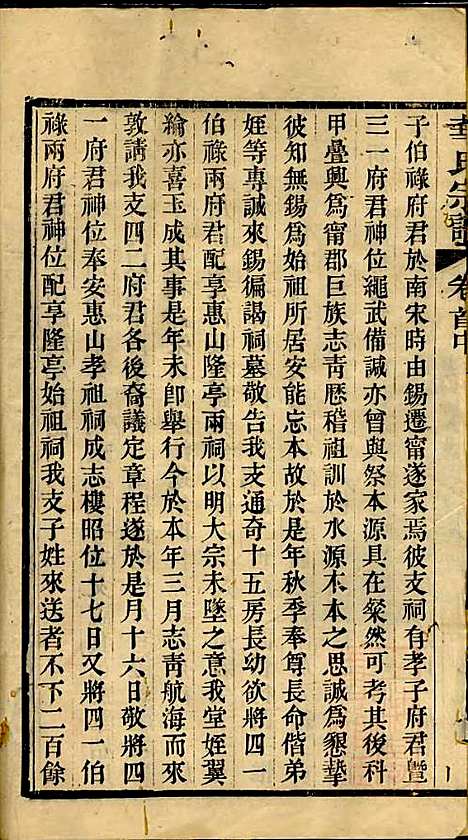 華氏宗譜 卷首中
子伯祿府君於南宋時由錫遷甯遂家焉彼支祠有孝子府君暨
三一府君神位繩武備諴亦曾與祭本源具在粲然可考其後科
甲疊興爲甯郡巨族志靑歷稽祖訓於水源木本之思誠爲懇摯
彼知無錫爲始祖所居安能忘本故於是年秋季奉尊長命偕弟
姪等專誠來錫徧謁祠墓敬告我支通奇十五房長幼欲將四一
伯祿兩府君配享惠山隆亭兩祠以明大宗未墜之意我堂姪翼
綸亦喜玉成其事是年未卽舉行今於本年三月志靑航海而來
敦請我支四二府君各後裔議定章程遂於是月十六日敬將四
一府君神位奉安惠山孝祖祠成志樓昭位十七日又將四一伯
祿兩府君神位配享隆亭始祖祠我支子姓來送者不下二百餘